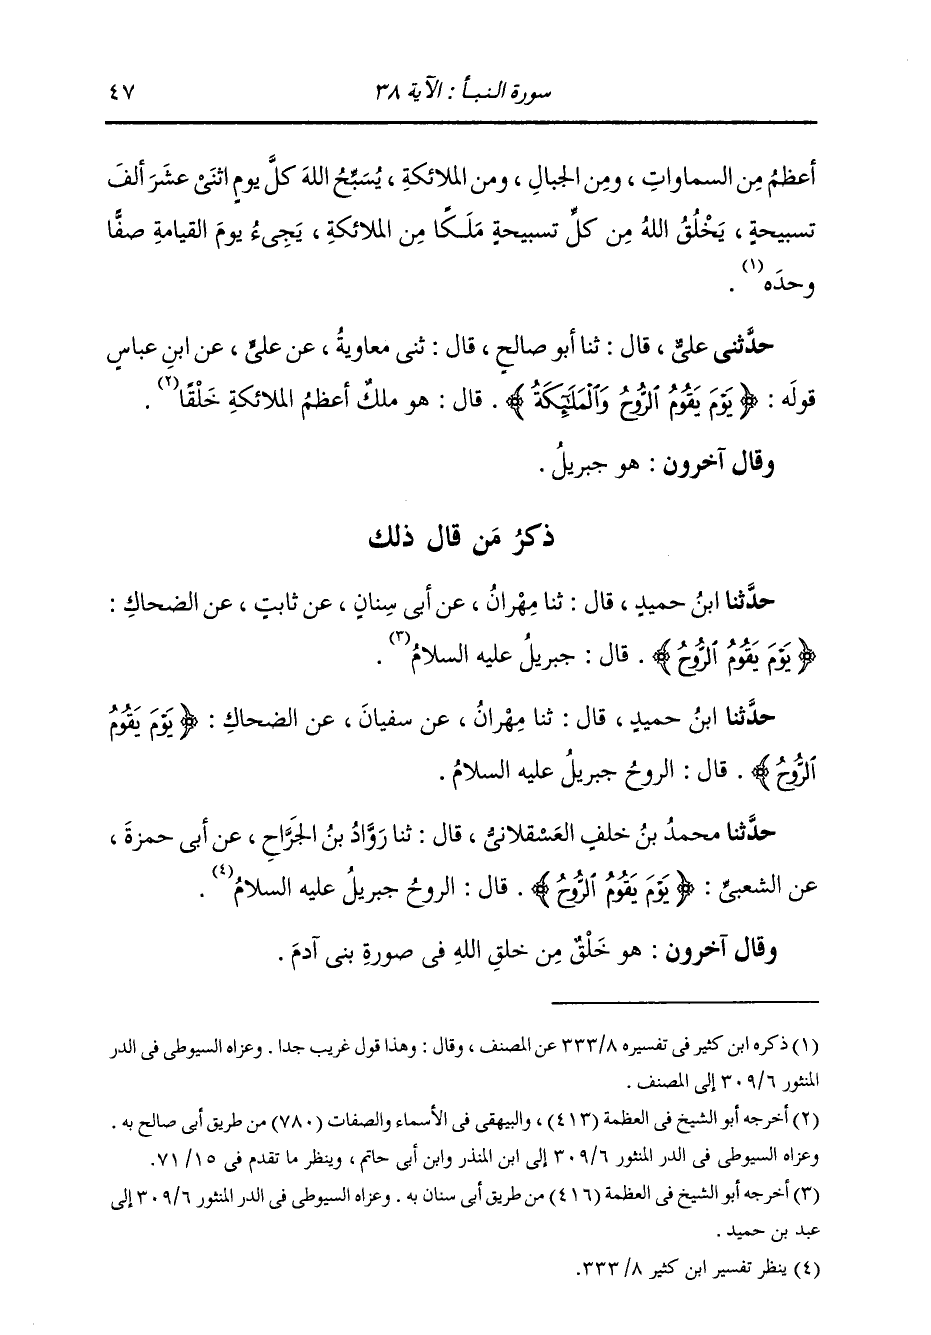 سورة النبأ : الآية ٣٨ ٤٧
أعظمُ مِن السماواتِ ، ومِن الجبالِ ، ومن الملائكةِ ، يُسَبِّحُ اللهَ كلَّ يومٍ اثنَىْ عشَرَ ألفَ
تسبيحةٍ ، يَخْلُقُ اللهُ مِن كلِّ تسبيحةٍ مَلَكًا مِن الملائكةِ ، يَجِىءُ يومَ القيامةِ صفًّا
وحدَه(١) .
حدَّثنى علىٌّ ، قال : ثنا أبو صالحٍ ، قال : ثنى معاويةُ ، عن علىٍّ ، عن ابنِ عباسٍ
قولَه : ﴿ يَوْمَ يَقُومُ ٱلرُّوحُ وَٱلْمَلَٰٓئِكَةُ ﴾ . قال : هو ملكٌ أعظمُ الملائكةِ خَلْقًا(٢) .
وقال آخرون : هو جبريلُ .
ذكرُ مَن قال ذلك
حدَّثنا ابنُ حميدٍ ، قال : ثنا مِهْرانُ ، عن أبى سِنانٍ ، عن ثابتٍ ، عن الضحاكِ :
﴿ يَوْمَ يَقُومُ ٱلرُّوحُ ﴾ . قال : جبريلُ عليه السلامُ(٣) .
حدَّثنا ابنُ حميدٍ ، قال : ثنا مِهْرانُ ، عن سفيانَ ، عن الضحاكِ : ﴿ يَوْمَ يَقُومُ
ٱلرُّوحُ ﴾ . قال : الروحُ جبريلُ عليه السلامُ .
حدَّثنا محمدُ بنُ خلفٍ العَسْقلانىُّ ، قال : ثنا رَوَّادُ بنُ الجَرَّاحِ ، عن أبى حمزةَ ،
عن الشعبىِّ : ﴿ يَوْمَ يَقُومُ ٱلرُّوحُ ﴾ . قال : الروحُ جبريلُ عليه السلامُ(٤) .
وقال آخرون : هو خَلْقٌ مِن خلقِ اللهِ فى صورةِ بنى آدمَ .
(١) ذكره ابن كثير فى تفسيره ٣٣٣/٨ عن المصنف ، وقال : وهذا قول غريب جدا . وعزاه السيوطى فى الدر
المنثور ٣٠٩/٦ إلى المصنف .
(٢) أخرجه أبو الشيخ فى العظمة (٤١٣) ، والبيهقى فى الأسماء والصفات (٧٨٠) من طريق أبى صالح به .
وعزاه السيوطى فى الدر المنثور ٣٠٩/٦ إلى ابن المنذر وابن أبى حاتم ، وينظر ما تقدم فى ١٥/ ٧١.
(٣) أخرجه أبو الشيخ فى العظمة (٤١٦) من طريق أبى سنان به . وعزاه السيوطى فى الدر المنثور ٣٠٩/٦ إلى
عبد بن حميد .
(٤) ينظر تفسير ابن كثير ٨/ ٣٣٣.